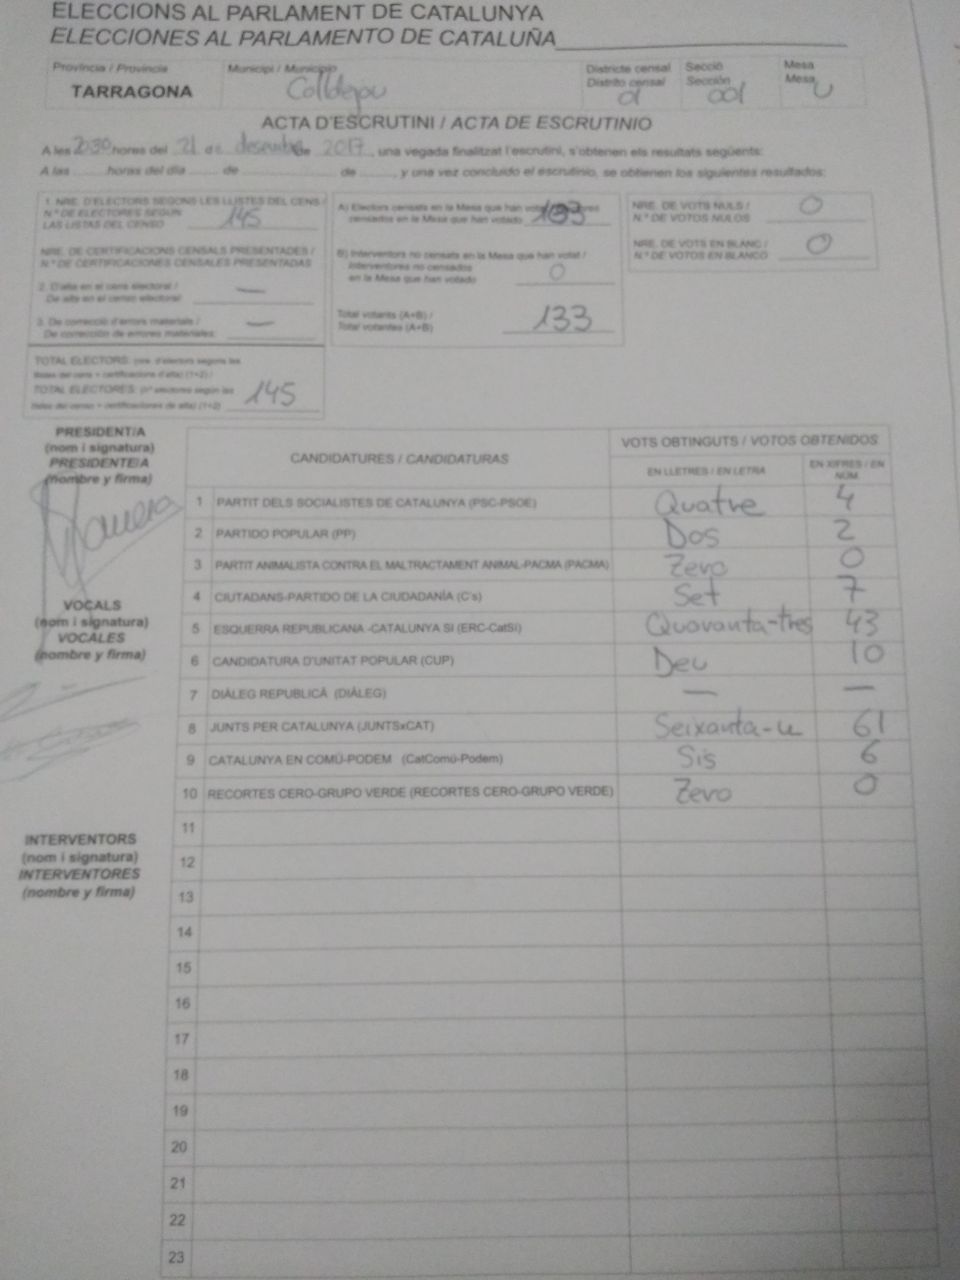 ELECCIONS AL PARLAMENT DE CATALUNYA
ELECCIONES AL PARLAMENTO DE CATALUÑA
Província / Provincia
TARRAGONA
Municipi / Municipio
Colldejou
Districte censal
Distrito censal
01
Secció
Sección
001
Mesa
Mesa
U
ACTA D'ESCRUTINI / ACTA DE ESCRUTINIO
A les 20:30 hores del 21 de desembre de 2017, una vegada finalitzat l'escrutini, s'obtenen els resultats següents:
A las ........ horas del día ........ de ........ de ........, y una vez concluido el escrutinio, se obtienen los siguientes resultados:
1. NRE. D'ELECTORS SEGONS LES LLISTES DEL CENS /
N.º DE ELECTORES SEGÚN
LAS LISTAS DEL CENSO 145
NRE. DE CERTIFICACIONS CENSALS PRESENTADES /
N.º DE CERTIFICACIONES CENSALES PRESENTADAS
2. D'alta en el cens electoral /
De alta en el censo electoral: —
3. De correcció d'errors materials /
De corrección de errores materiales: —
TOTAL ELECTORS: (nre. d'electors segons les
llistes del cens + certificacions d'alta) (1+2) /
TOTAL ELECTORES: (n.º electores según las
listas del censo + certificaciones de alta) (1+2) 145
A) Electors censats en la Mesa que han votat / Electores
censados en la Mesa que han votado 133
B) Interventors no censats en la Mesa que han votat /
Interventores no censados
en la Mesa que han votado 0
Total votants (A+B) /
Total votantes (A+B) 133
NRE. DE VOTS NULS /
N.º DE VOTOS NULOS 0
NRE. DE VOTS EN BLANC /
N.º DE VOTOS EN BLANCO 0
PRESIDENT/A
(nom i signatura)
PRESIDENTE/A
(nombre y firma)
VOCALS
(nom i signatura)
VOCALES
(nombre y firma)
INTERVENTORS
(nom i signatura)
INTERVENTORES
(nombre y firma)
CANDIDATURES / CANDIDATURAS
VOTS OBTINGUTS / VOTOS OBTENIDOS
EN LLETRES / EN LETRA
EN XIFRES / EN
NÚM.
1 PARTIT DELS SOCIALISTES DE CATALUNYA (PSC-PSOE) Quatre 4
2 PARTIDO POPULAR (PP) Dos 2
3 PARTIT ANIMALISTA CONTRA EL MALTRACTAMENT ANIMAL-PACMA (PACMA) Zero 0
4 CIUTADANS-PARTIDO DE LA CIUDADANÍA (C's) Set 7
5 ESQUERRA REPUBLICANA -CATALUNYA SÍ (ERC-CatSí) Quaranta-tres 43
6 CANDIDATURA D'UNITAT POPULAR (CUP) Deu 10
7 DIÀLEG REPUBLICÀ (DIÀLEG) — —
8 JUNTS PER CATALUNYA (JUNTSxCAT) Seixanta-u 61
9 CATALUNYA EN COMÚ-PODEM (CatComú-Podem) Sis 6
10 RECORTES CERO-GRUPO VERDE (RECORTES CERO-GRUPO VERDE) Zero 0
11
12
13
14
15
16
17
18
19
20
21
22
23